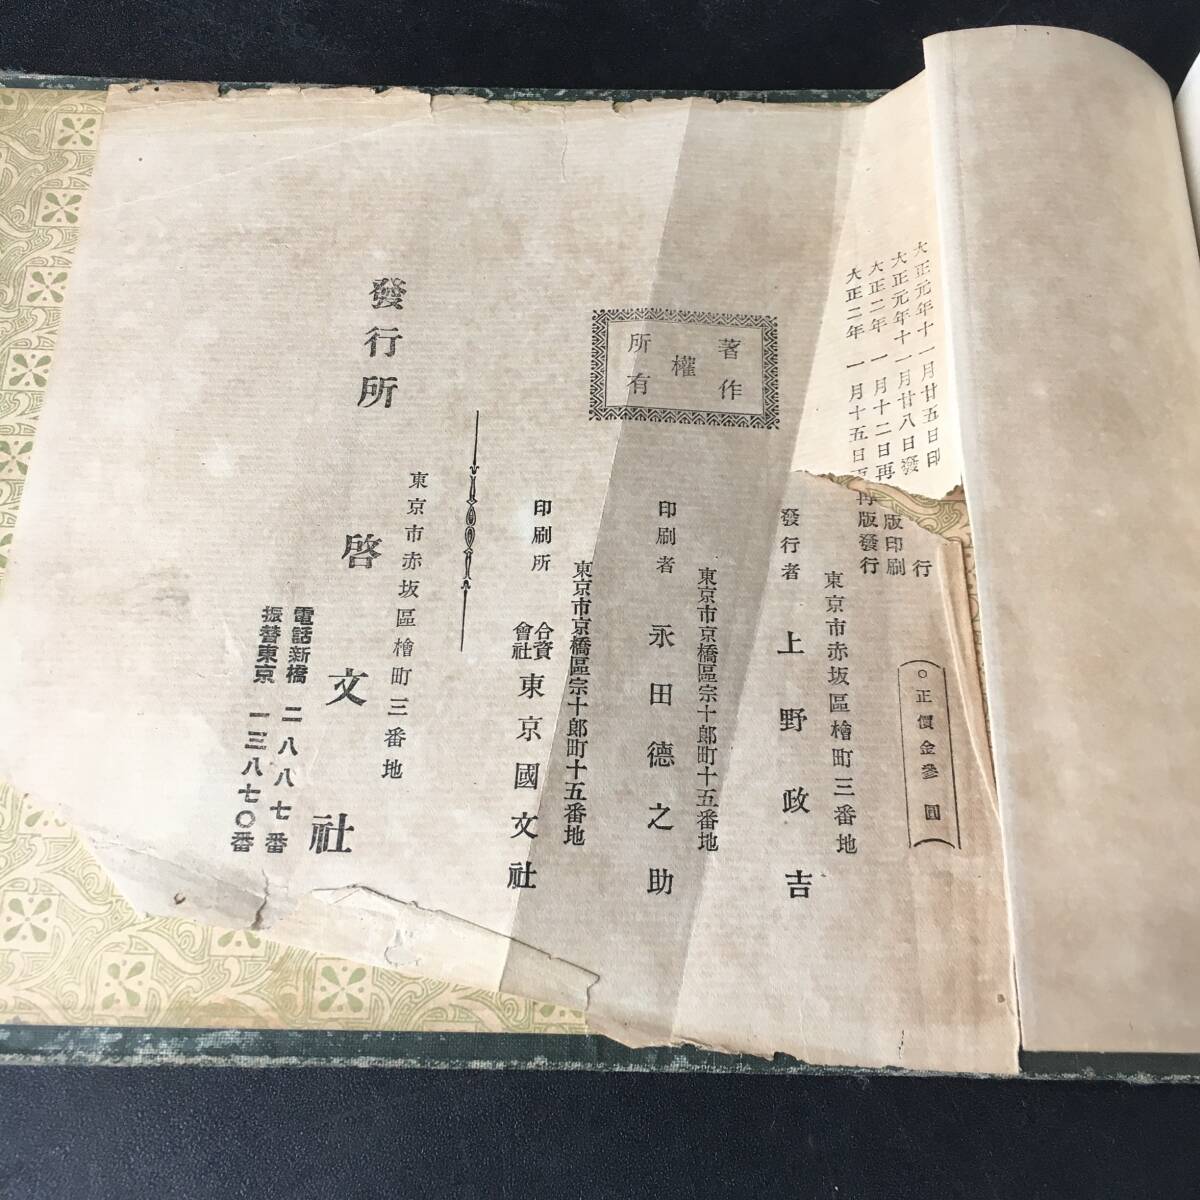 大正元年十一月廿五日印
大正元年十一月廿八日發行
大正二年一月十二日再版印刷
大正二年一月十五日再版發行
○正價金參圓
著作權所有
東京市赤坂區檜町三番地
發行者 上野政吉
東京市京橋區宗十郎町十五番地
印刷者 永田德之助
東京市京橋區宗十郎町十五番地
印刷所 合資會社 東京國文社
東京市赤坂區檜町三番地
發行所 啓文社
電話新橋 二八八七番
振替東京 一三八七〇番